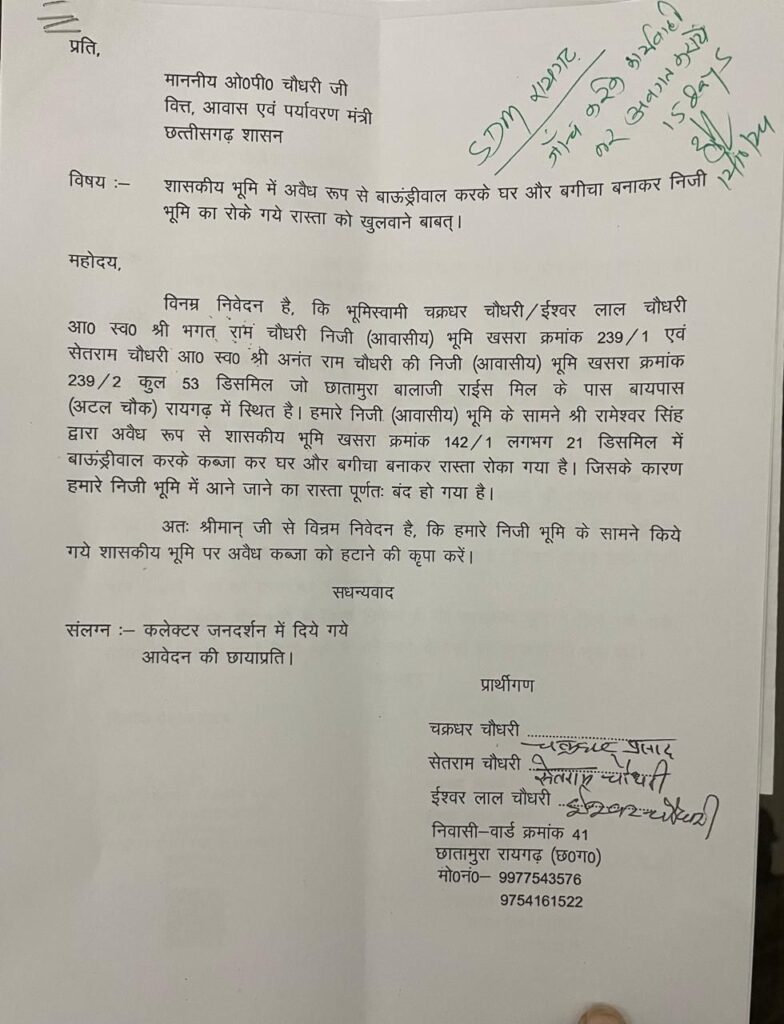 प्रति,
माननीय ओ0पी0 चौधरी जी
वित्त, आवास एवं पर्यावरण मंत्री
छत्तीसगढ़ शासन
SDM रायगढ़
जाँच करके कार्यवाही
कर अवगत करायें
15 days
12/10/24
विषय :– शासकीय भूमि में अवैध रूप से बाऊंड्रीवाल करके घर और बगीचा बनाकर निजी
भूमि का रोके गये रास्ता को खुलवाने बाबत्।
महोदय,
विनम्र निवेदन है, कि भूमिस्वामी चक्रधर चौधरी/ईश्वर लाल चौधरी
आ0 स्व0 श्री भगत राम चौधरी निजी (आवासीय) भूमि खसरा क्रमांक 239/1 एवं
सेतराम चौधरी आ0 स्व0 श्री अनंत राम चौधरी की निजी (आवासीय) भूमि खसरा क्रमांक
239/2 कुल 53 डिसमिल जो छातामुरा बालाजी राईस मिल के पास बायपास
(अटल चौक) रायगढ़ में स्थित है। हमारे निजी (आवासीय) भूमि के सामने श्री रामेश्वर सिंह
द्वारा अवैध रूप से शासकीय भूमि खसरा क्रमांक 142/1 लगभग 21 डिसमिल में
बाऊंड्रीवाल करके कब्जा कर घर और बगीचा बनाकर रास्ता रोका गया है। जिसके कारण
हमारे निजी भूमि में आने जाने का रास्ता पूर्णतः बंद हो गया है।
अतः श्रीमान् जी से विन्रम निवेदन है, कि हमारे निजी भूमि के सामने किये
गये शासकीय भूमि पर अवैध कब्जा को हटाने की कृपा करें।
सधन्यवाद
संलग्न :– कलेक्टर जनदर्शन में दिये गये
आवेदन की छायाप्रति।
प्रार्थीगण
चक्रधर चौधरी ........................
चक्रधर प्रसाद
सेतराम चौधरी ........................
सेतराम चौधरी
ईश्वर लाल चौधरी .... ईश्वर चौधरी
निवासी–वार्ड क्रमांक 41
छातामुरा रायगढ़ (छ0ग0)
मो0नं0– 9977543576
9754161522